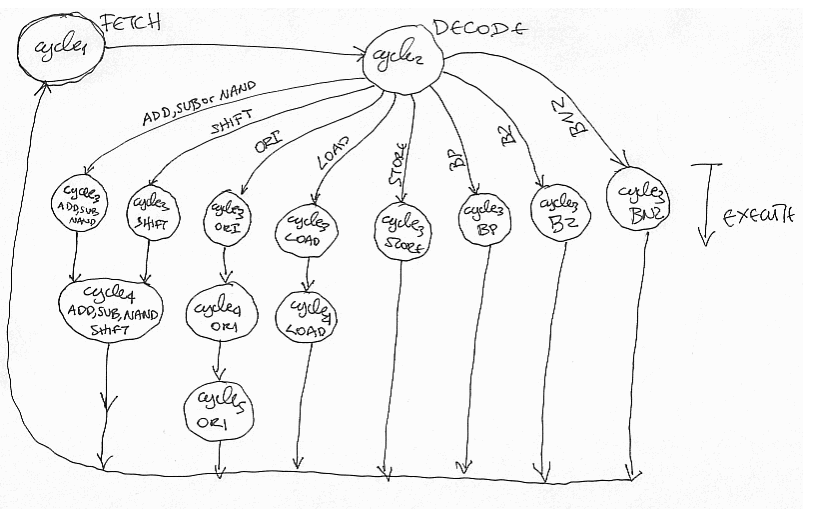 FETCH
cycle1
DECODE
cycle2
ADD,SUB or NAND
SHIFT
ORI
LOAD
STORE
BP
BZ
BNZ
cycle3
ADD,SUB
NAND
cycle3
SHIFT
cycle3
ORI
cycle3
LOAD
cycle3
STORE
cycle3
BP
cycle3
BZ
cycle3
BNZ
EXECUTE
cycle4
ADD,SUB,NAND
SHIFT
cycle4
ORI
cycle4
LOAD
cycle5
ORI